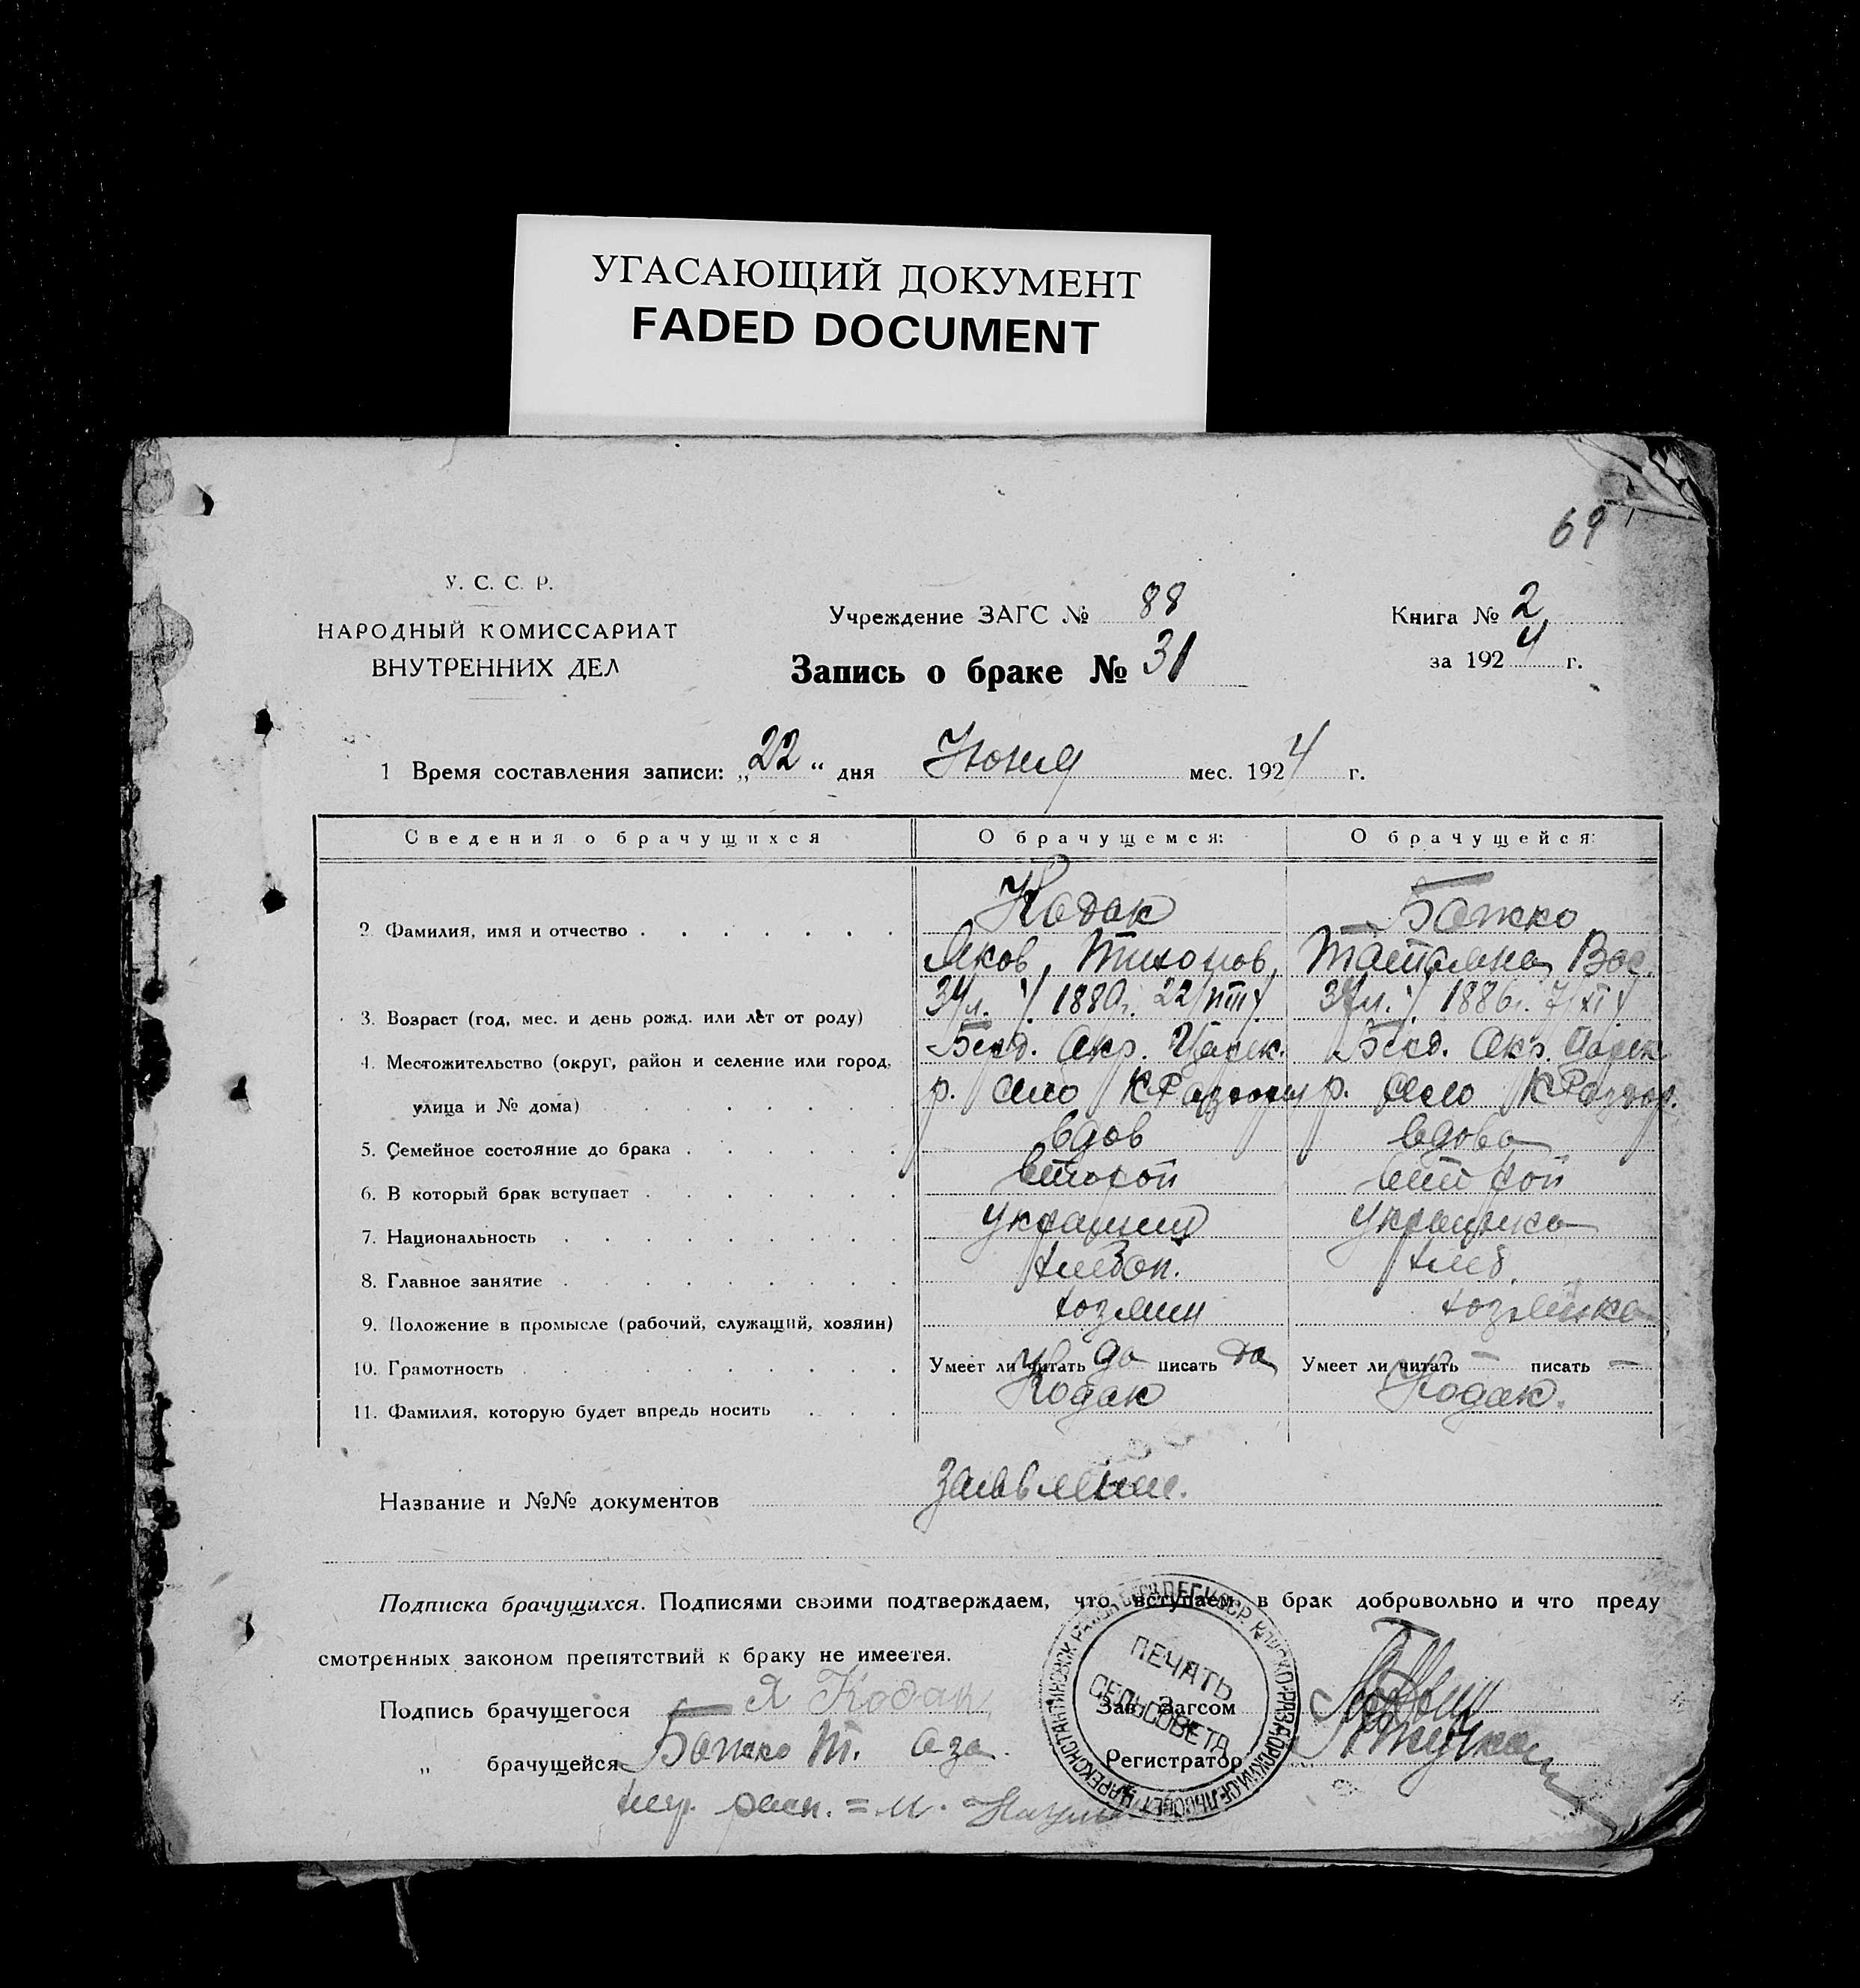 УГАСАЮЩИЙ ДОКУМЕНТ
FADED DOCUMENT
69
У. С. С. Р.
НАРОДНЫЙ КОМИССАРИАТ
ВНУТРЕННИХ ДЕЛ
Учреждение ЗАГС № 88
Запись о браке № 31
Книга № 2
за 1924 г.
1 Время составления записи: „22“ дня Июня мес. 1924 г.
Сведения о брачущихся О брачущемся: О брачущейся:
2. Фамилия, имя и отчество Кодак Божко
Яков Тихонов. Татьяна Вас.
3. Возраст (год, мес. и день рожд. или лет от роду) 34л. 22/VIII 37л. 1886г. 7/XI
4. Местожительство (округ, район и селение или город, Берд. Окр. Царек. Берд. Окр. Царек
улица и № дома) р. село К Раздоры р. село К Раздор.
5. Семейное состояние до брака вдов вдова
6. В который брак вступает второй второй
7. Национальность украинец украинка
8. Главное занятие хлебоп. хлеб.
9. Положение в промысле (рабочий, служащий, хозяин) хозяин хозяйка
10. Грамотность Умеет ли читать да писать да Умеет ли читать — писать —
11. Фамилия, которую будет впредь носить Кодак Кодак.
Название и №№ документов заявление.
Подписка брачущихся. Подписями своими подтверждаем, что вступаем в брак добровольно и что преду
смотренных законом препятствий к браку не имеется.
Подпись брачущегося Я Кодак Зав Загсом
„ брачущейся Божко Т. а за Регистратор
нег. расп.
ПЕЧАТЬ
СЕЛЬСОВЕТА